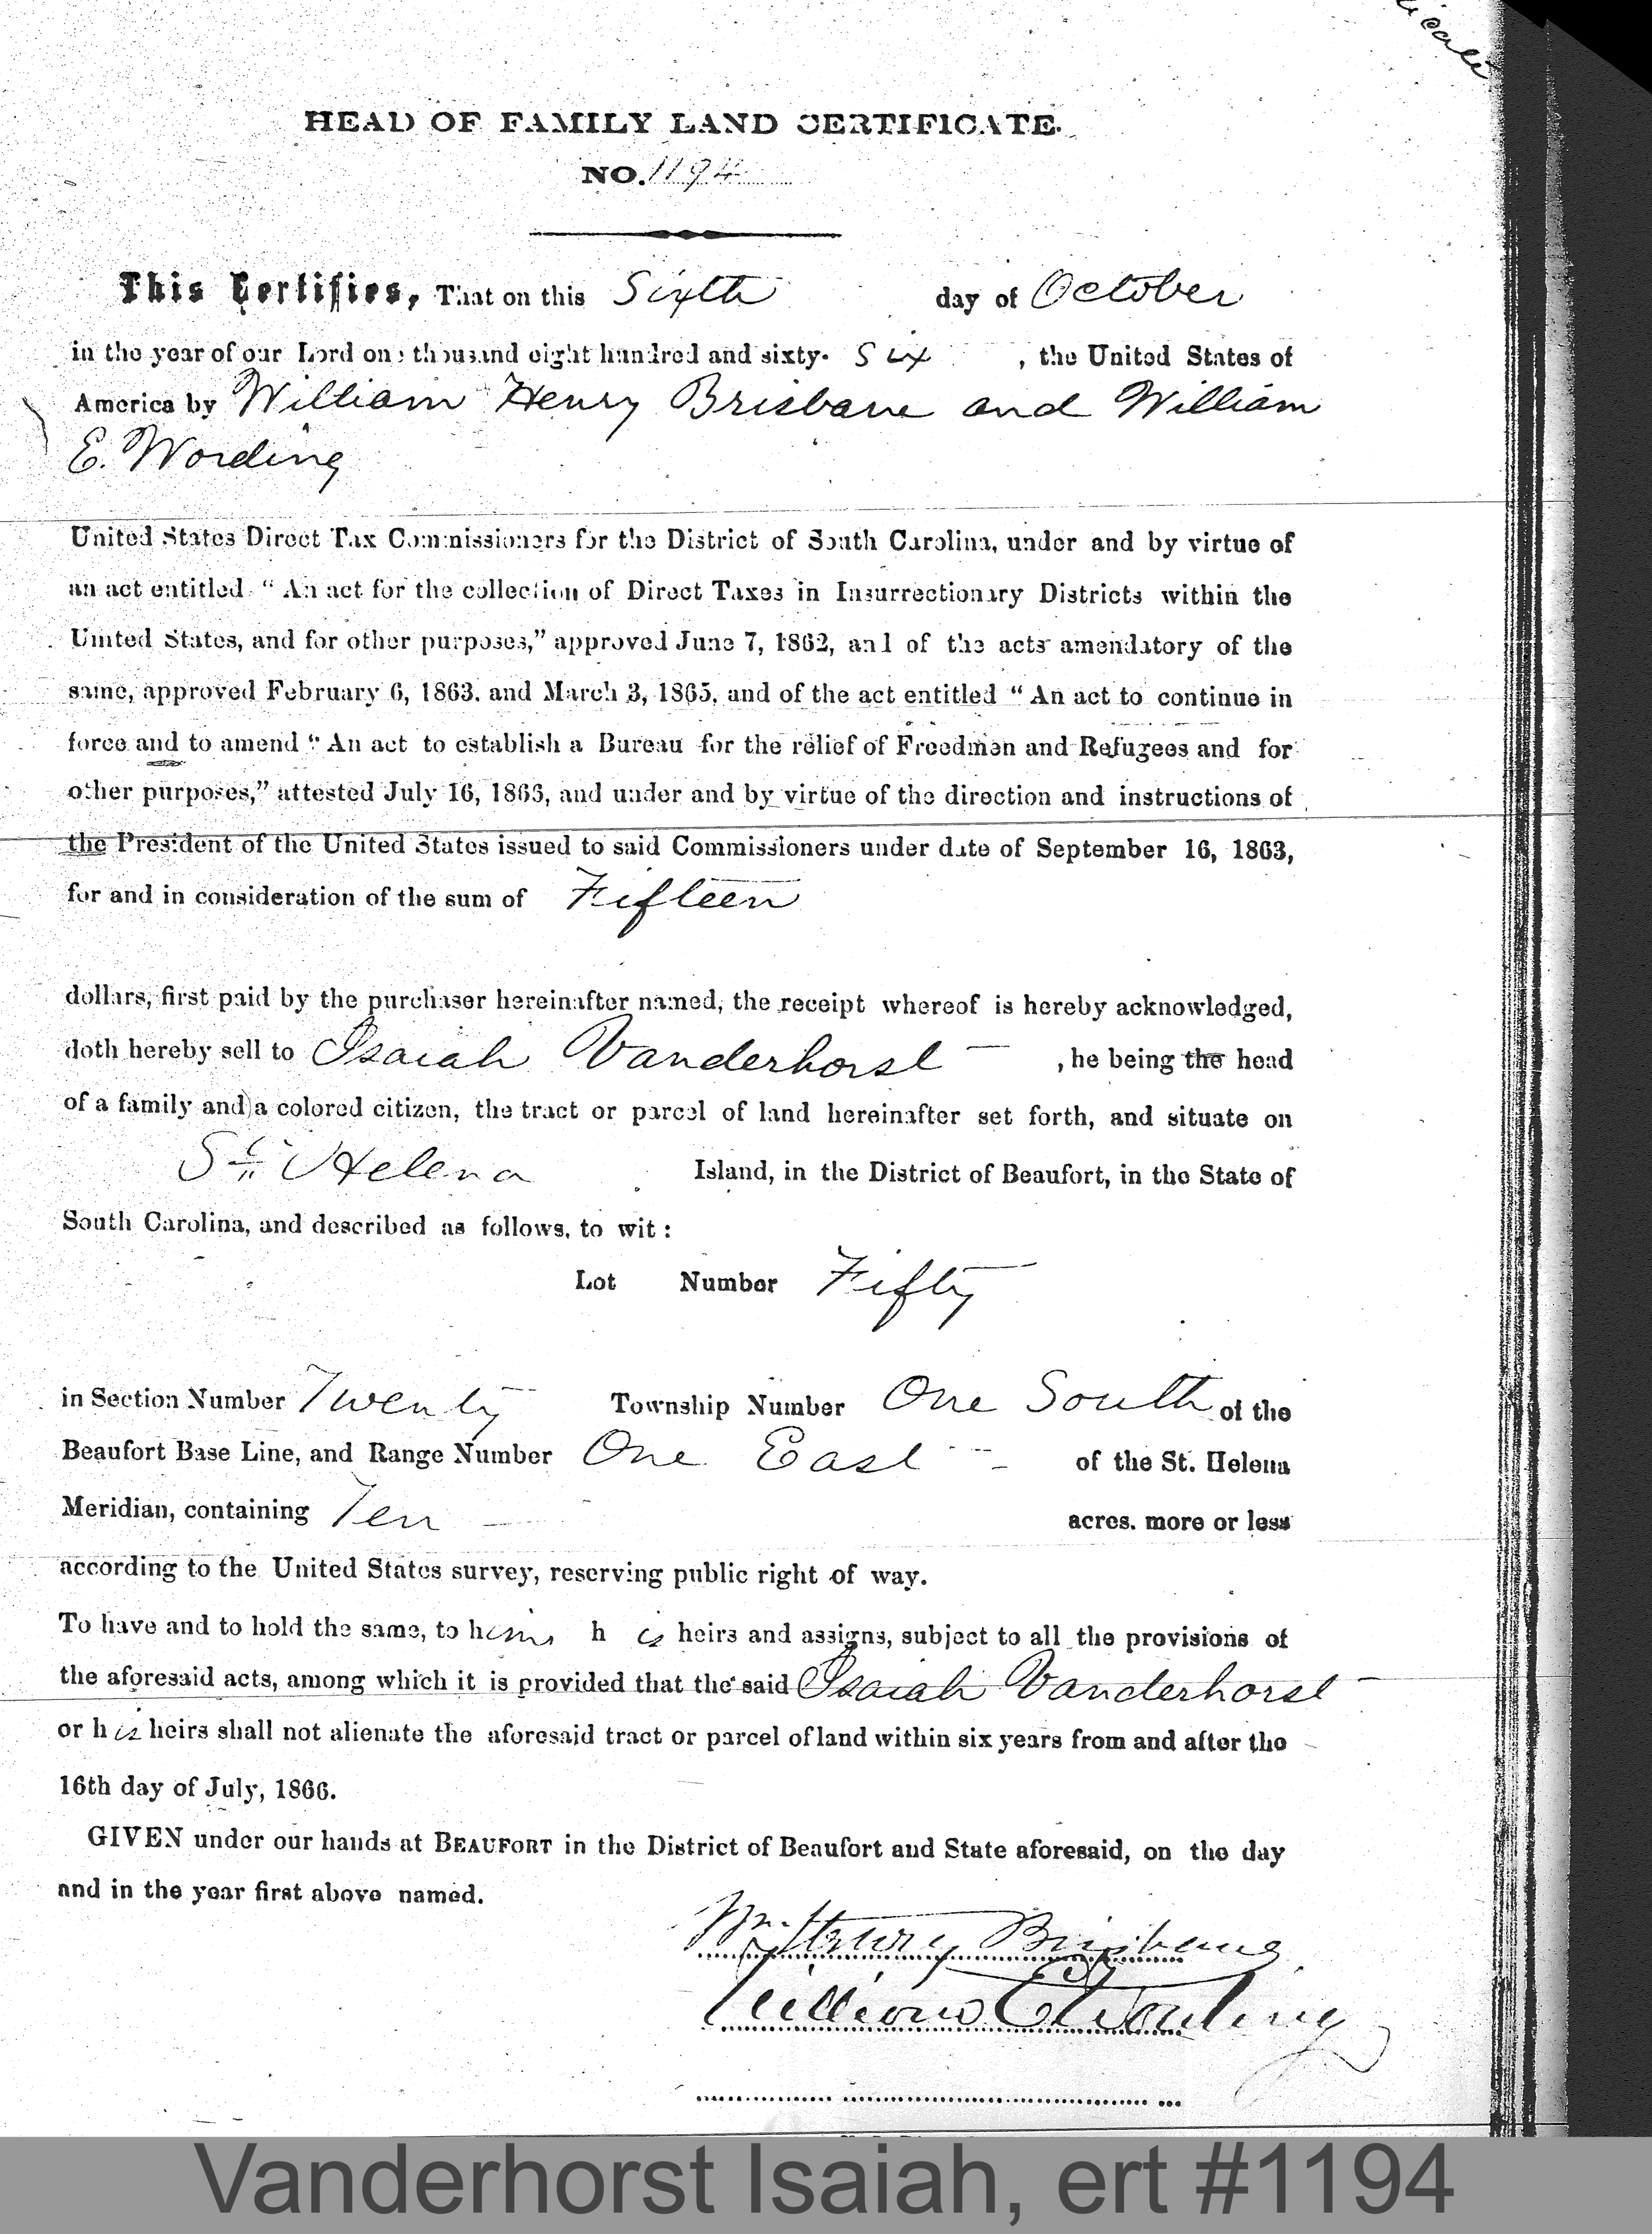 HEAD OF FAMILY LAND CERTIFICATE.
NO. 1194
This Certifies, That on this Sixth day of October
in the year of our Lord one thousand eight hundred and sixty- six , the United States of
America by William Henry Brisbane and William
E. Wording
United States Direct Tax Commissioners for the District of South Carolina, under and by virtue of
an act entitled "An act for the collection of Direct Taxes in Insurrectionary Districts within the
United States, and for other purposes," approved June 7, 1862, and of the acts amendatory of the
same, approved February 6, 1863, and March 3, 1865, and of the act entitled "An act to continue in
force and to amend "An act to establish a Bureau for the relief of Freedmen and Refugees and for
other purposes," attested July 16, 1866, and under and by virtue of the direction and instructions of
the President of the United States issued to said Commissioners under date of September 16, 1863,
for and in consideration of the sum of Fifteen
dollars, first paid by the purchaser hereinafter named, the receipt whereof is hereby acknowledged,
doth hereby sell to Isaiah Vanderhorst , he being the head
of a family and a colored citizen, the tract or parcel of land hereinafter set forth, and situate on
St. Helena Island, in the District of Beaufort, in the State of
South Carolina, and described as follows, to wit:
Lot Number Fifty
in Section Number Twenty Township Number One South of the
Beaufort Base Line, and Range Number One East of the St. Helena
Meridian, containing Ten acres, more or less
according to the United States survey, reserving public right of way.
To have and to hold the same, to him, his heirs and assigns, subject to all the provisions of
the aforesaid acts, among which it is provided that the said Isaiah Vanderhorst
or his heirs shall not alienate the aforesaid tract or parcel of land within six years from and after the
16th day of July, 1866.
GIVEN under our hands at BEAUFORT in the District of Beaufort and State aforesaid, on the day
and in the year first above named.
Wm. Henry Brisbane
William E. Wording
Vanderhorst Isaiah, ert #1194